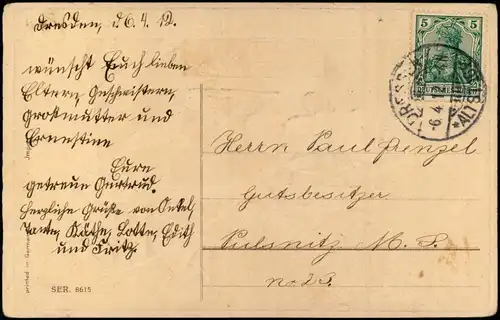 Dresden, d 6.4. 12.
wünscht Euch lieben
Eltern, Geschwistern,
Großmutter und
Ernestine
Eure
getreue Gertrud.
Herzliche Grüße von Onkel,
Tante, Käthe, Lotte, Edith
und Fritz.
Herrn Paul Frenzel
Gutsbesitzer
Pulsnitz M. S.
no 23.
5 5
DRESDEN
-6.4.
*ALTST
printed in Germany
SER. 8615